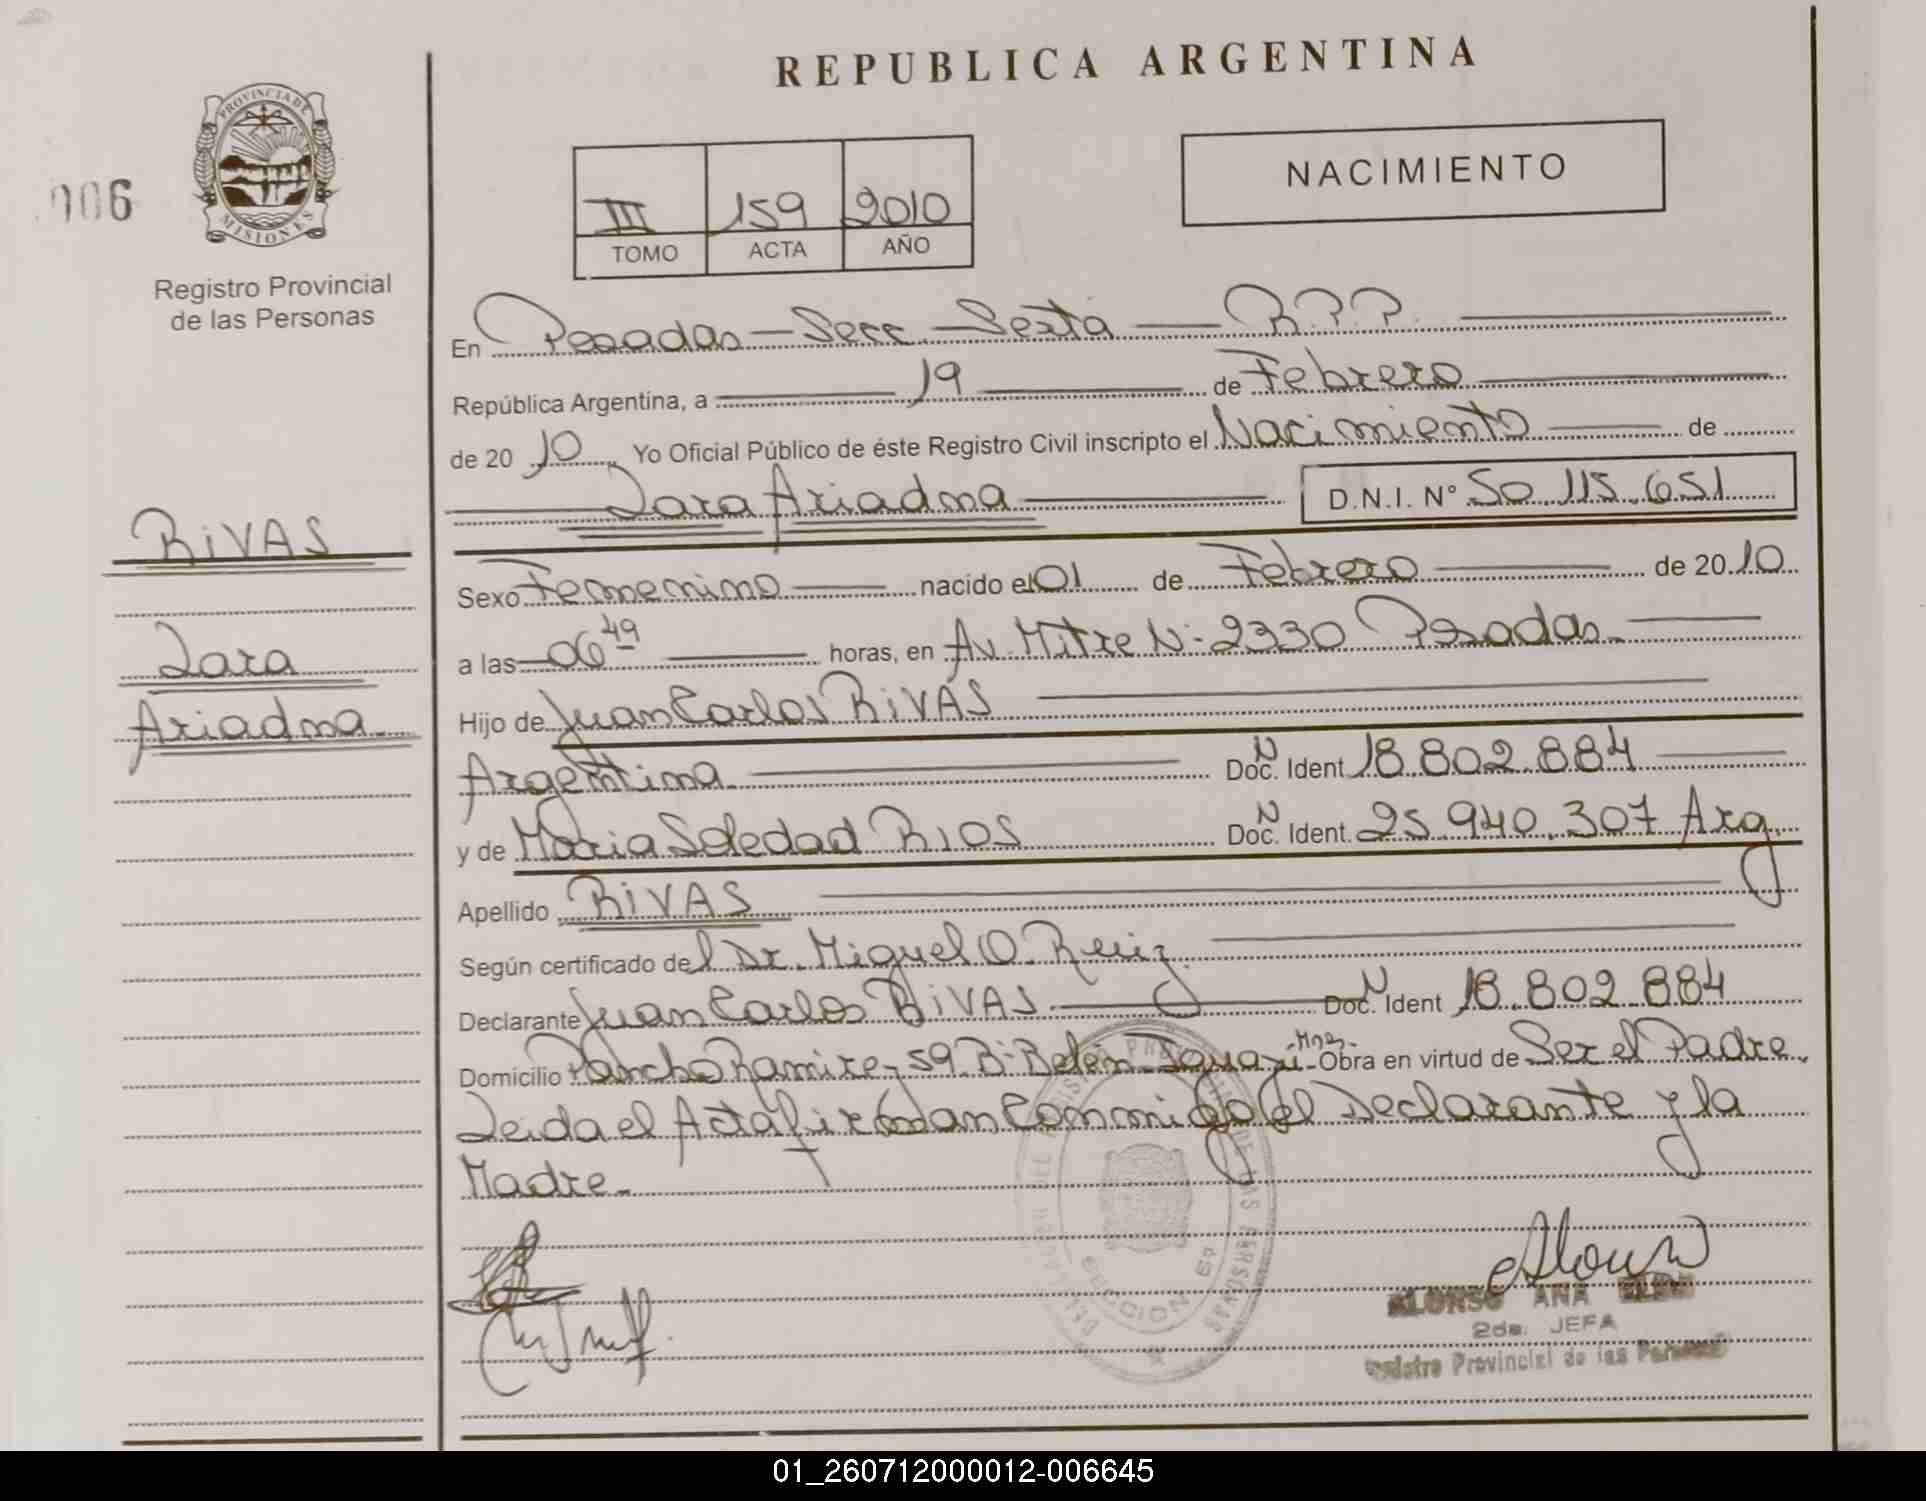 REPUBLICA ARGENTINA
PROVINCIA DE MISIONES
006
Registro Provincial
de las Personas
III 159 2010
TOMO ACTA AÑO
NACIMIENTO
En Posadas - Secc. - Sexta - R.P.P.
República Argentina, a 19 de Febrero
de 2010 Yo Oficial Público de éste Registro Civil inscripto el Nacimiento de
Zara Ariadna D.N.I. N° 50.115.651
RIVAS
Zara
Ariadna
Sexo Femenino nacido el 01 de Febrero de 2010
a las 06 49 horas, en Av. Mitre N: 2330 Posadas
Hijo de Juan Carlos RIVAS
Argentina Doc. Ident N 18.802.884
y de Maria Soledad RIOS Doc. Ident. N 25.940.307 Arg.
Apellido RIVAS
Según certificado del Dr. Miguel O. Ruiz
Declarante Juan Carlos RIVAS Doc. Ident N 18.802.884
Domicilio Pancho Ramirez 59 B: Belén - Mnes - Obra en virtud de Ser el Padre.
Leida el Acta firman Conmigo el Declarante y la
Madre.
ALONSO ANA
2da. JEFA
Registro Provincial de las Personas
01_260712000012-006645